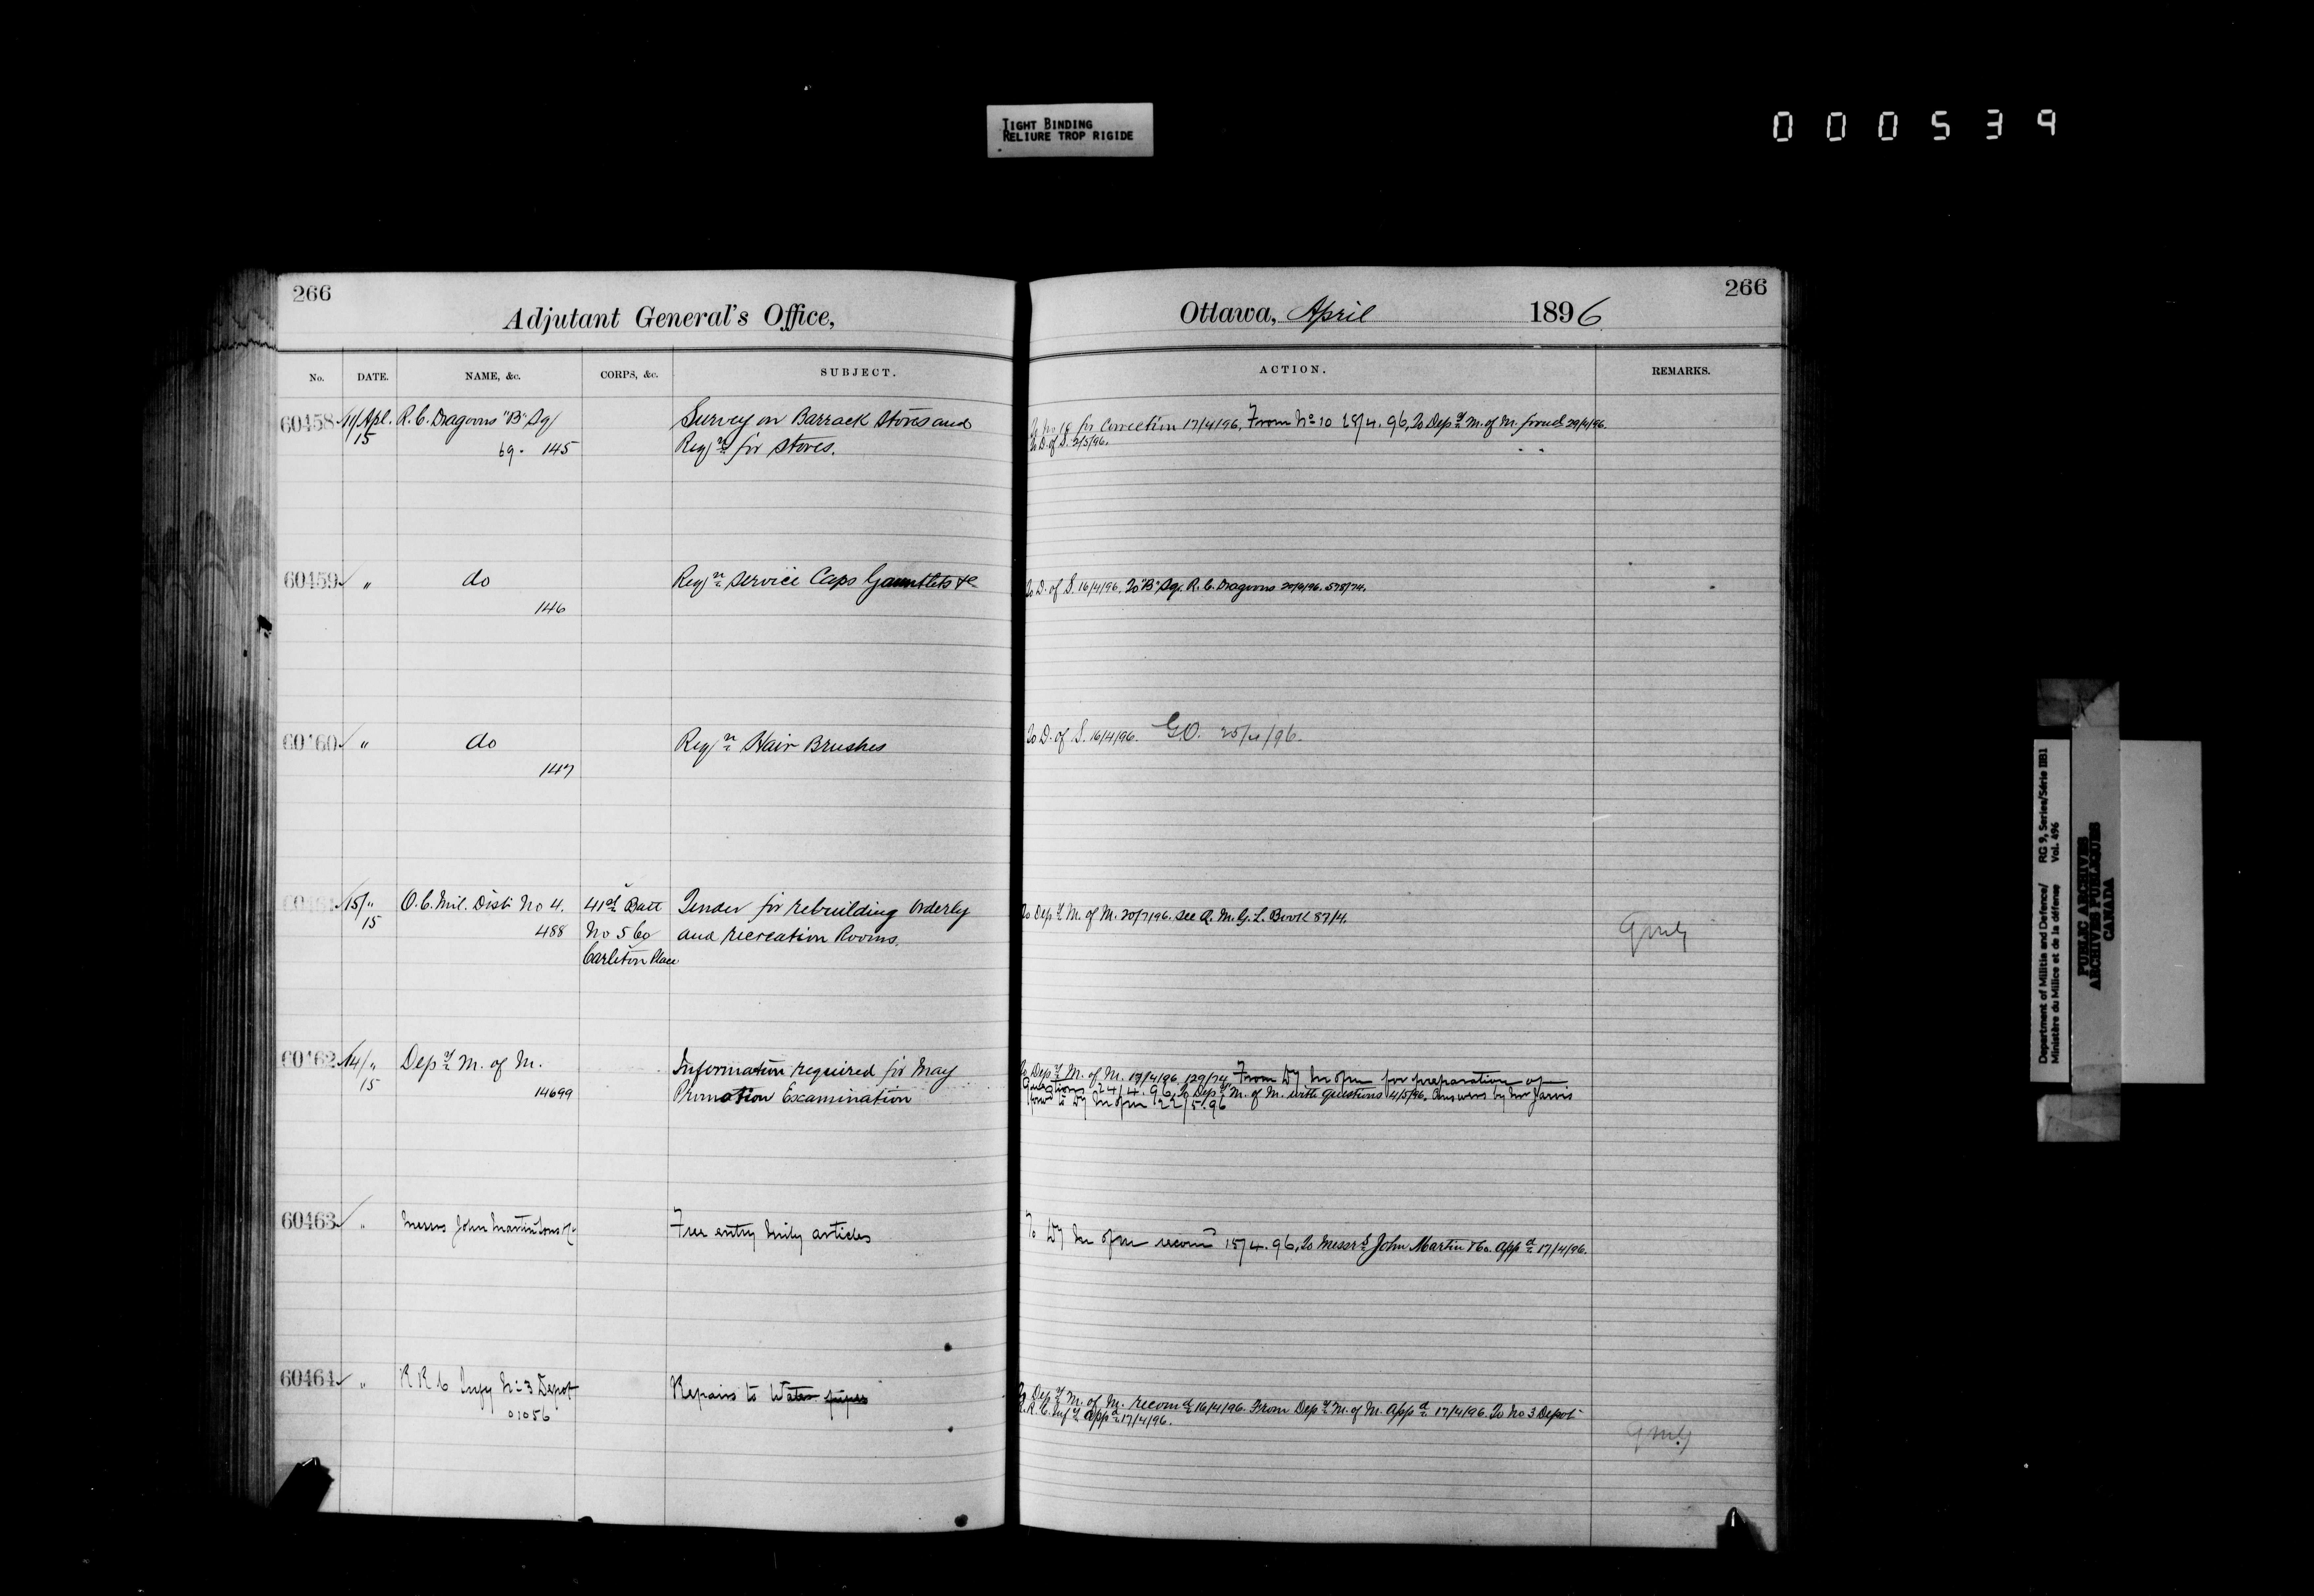 TIGHT BINDING
RELIURE TROP RIGIDE
000539
266
Adjutant General's Office,
No. DATE. NAME, &c. CORPS, &c. SUBJECT.
60458 11/Apl. R. C. Dragoons "B" Sq/ Survey on Barrack Stores and
15 69 - 145 Req/n for Stores.
60459 " do Req/n Service Caps Gauntlets &c
146
60460 " do Req/n Hair Brushes
147
15/" O. C. Mil. Dist. No 4. 41st Batt Tender for rebuilding Orderly
15 488 No 5 Co/ and recreation Rooms.
Carleton Place
60462 14/" Depy M. of M. Information required for May
15 14699 Promotion Examination
60463 " Messrs John Martin Sons & Co Free entry Mily articles
60464 " R R C Infy No 3 Depot Repairs to Water pipes
01056
266
Ottawa, April 1896
ACTION. REMARKS.
for Correction 17/4/96, From No 10 28/4.96, To Depy M. of M. forwd 29/4/96.
To D. of S. 2/5/96.
To D. of S. 16/4/96. To "B" Sq. R. C. Dragoons 20/4/96. 578/74.
To D. of S. 16/4/96. G.O. 25/4/96.
To Depy M. of M. 20/7/96. See Q. M. G. L. Book 87/4.
QMG
To Depy M. of M. 17/4/96. 129/74, From for preparation of
Questions 24/4.96, To Depy M. of M. with questions 14/5/96. Answers by Mr Jarvis
forwd to 22/5.96
To recomd 15/4.96, To Messrs John Martin & Co. appd 17/4/96.
To Depy M. of M. recomd 16/4/96. From Depy M. of M. Appd 17/4/96. To No 3 Depot
R. R. C. Infy Appd 17/4/96.
QMG
Department of Militia and Defence/ RG 9, Series/Série IIB1
Ministère du Milice et de la défense Vol. 496
PUBLIC ARCHIVES
ARCHIVES PUBLIQUES
CANADA